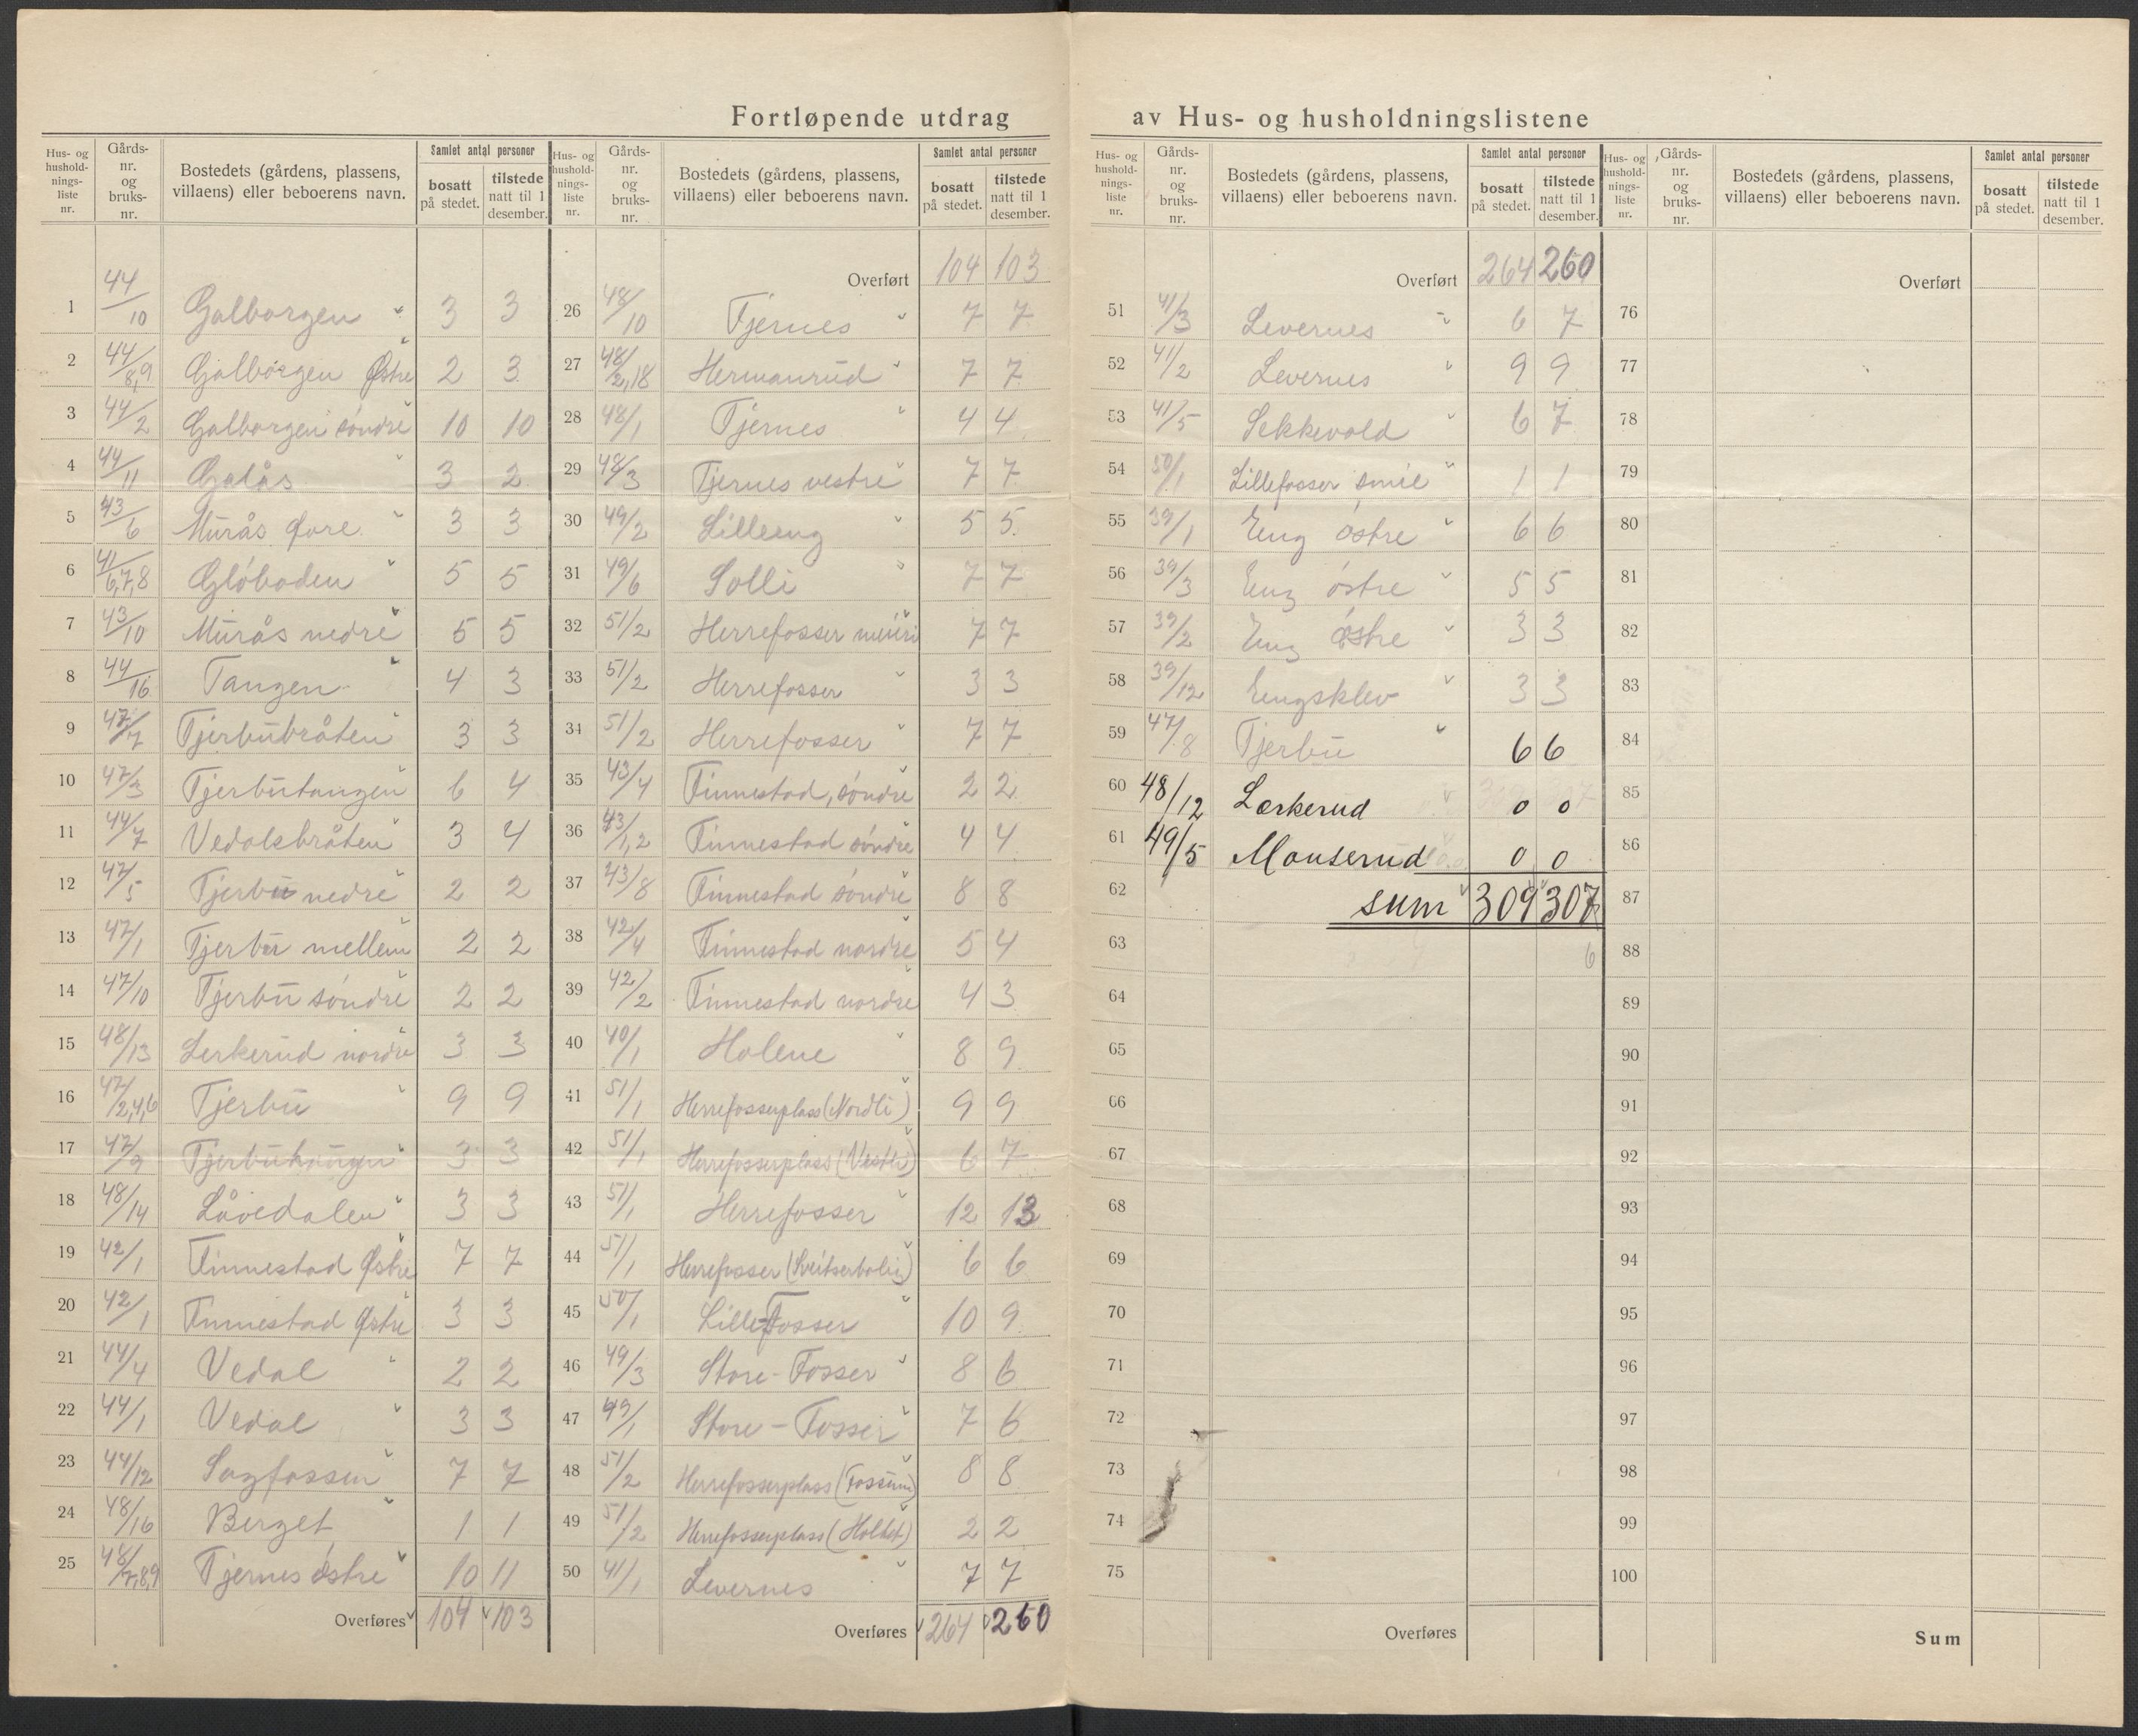 Fortløpende utdrag av Hus- og husholdningslistene
Hus- og hushold-nings-liste nr. Gårds-nr. og bruks-nr. Bostedets (gårdens, plassens, villaens) eller beboerens navn. Samlet antal personer bosatt på stedet. tilstede natt til 1 desember.
1 44/10 Galborgen 3 3
2 44/8,9 Galborgen Østre 2 3
3 44/2 Galborgen søndre 10 10
4 44/11 Galås 3 2
5 43/6 Murås øvre 3 3
6 41/6,7,8 Glóboden 5 5
7 43/10 Murås nedre 5 5
8 44/16 Tangen 4 3
9 47/7 Tjerbubråten 3 3
10 47/3 Tjerbutangen 6 4
11 44/7 Vedalsbråten 3 4
12 47/5 Tjerbu nedre 2 2
13 47/1 Tjerbu mellem 2 2
14 47/10 Tjerbu søndre 2 2
15 48/13 Lerkerud nordre 3 3
16 47/2,4,6 Tjerbu 9 9
17 47/9 Tjerbuhaugen 3 3
18 48/14 Låvedalen 3 3
19 42/1 Finnestad Østre 7 7
20 42/1 Finnestad Østre 3 3
21 44/4 Vedal 2 2
22 44/1 Vedal 3 3
23 44/12 Sagfossen 7 7
24 48/16 Berget 1 1
25 48/7,8,9 Tjernes østre 10 11
Overføres 104 103
Hus- og hushold-nings-liste nr. Gårds-nr. og bruks-nr. Bostedets (gårdens, plassens, villaens) eller beboerens navn. Samlet antal personer bosatt på stedet. tilstede natt til 1 desember.
Overført 104 103
26 48/10 Tjernes 7 7
27 48/2,18 Hermanrud 7 7
28 48/1 Tjernes 4 4
29 48/3 Tjernes vestre 7 7
30 49/2 Lilleeng 5 5
31 49/6 Solli 7 7
32 51/2 Herrefosser 7 7
33 51/2 Herrefosser 3 3
34 51/2 Herrefosser 7 7
35 43/4 Finnestad, søndre 2 2
36 43/1,2 Finnestad søndre 4 4
37 43/8 Finnestad søndre 8 8
38 42/4 Finnestad nordre 5 4
39 42/2 Finnestad nordre 4 3
40 40/1 Holene 8 9
41 51/1 Herrefosserplass (Nordli) 9 9
42 51/1 Herrefosserplass (Vestli) 6 7
43 51/1 Herrefosser 12 13
44 51/1 Herrefosser (Sveitserbolig) 6 6
45 50/1 Lille-Fosser 10 9
46 49/3 Store-Fosser 8 6
47 49/1 Store-Fosser 7 6
48 51/2 Herrefosserplass (Fossum) 8 8
49 51/2 Herrefosserplass (Holtet) 2 2
50 41/1 Levernes 7 7
Overføres 264 260
Hus- og hushold-nings-liste nr. Gårds-nr. og bruks-nr. Bostedets (gårdens, plassens, villaens) eller beboerens navn. Samlet antal personer bosatt på stedet. tilstede natt til 1 desember.
Overført 264 260
51 41/3 Levernes 6 7
52 41/2 Levernes 9 9
53 41/5 Sekkevold 6 7
54 50/1 Lillefosser smie 1 1
55 39/1 Eng østre 6 6
56 39/3 Eng østre 5 5
57 39/2 Eng østre 3 3
58 39/12 Engsklev 3 3
59 47/8 Tjerbu 6 6
60 48/12 Lerkerud 0 0
61 49/5 Monserud 0 0
62 sum 309 307
63 6
64
65
66
67
68
69
70
71
72
73
74
75
Overføres
Hus- og hushold-nings-liste nr. Gårds-nr. og bruks-nr. Bostedets (gårdens, plassens, villaens) eller beboerens navn. Samlet antal personer bosatt på stedet. tilstede natt til 1 desember.
Overført
76
77
78
79
80
81
82
83
84
85
86
87
88
89
90
91
92
93
94
95
96
97
98
99
100
Sum